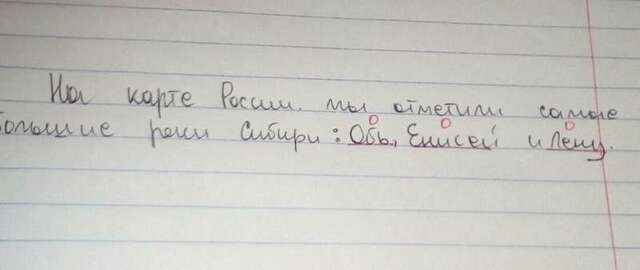 На карте России мы отметили самые
большие реки Сибири: Обь, Енисей и Лену.